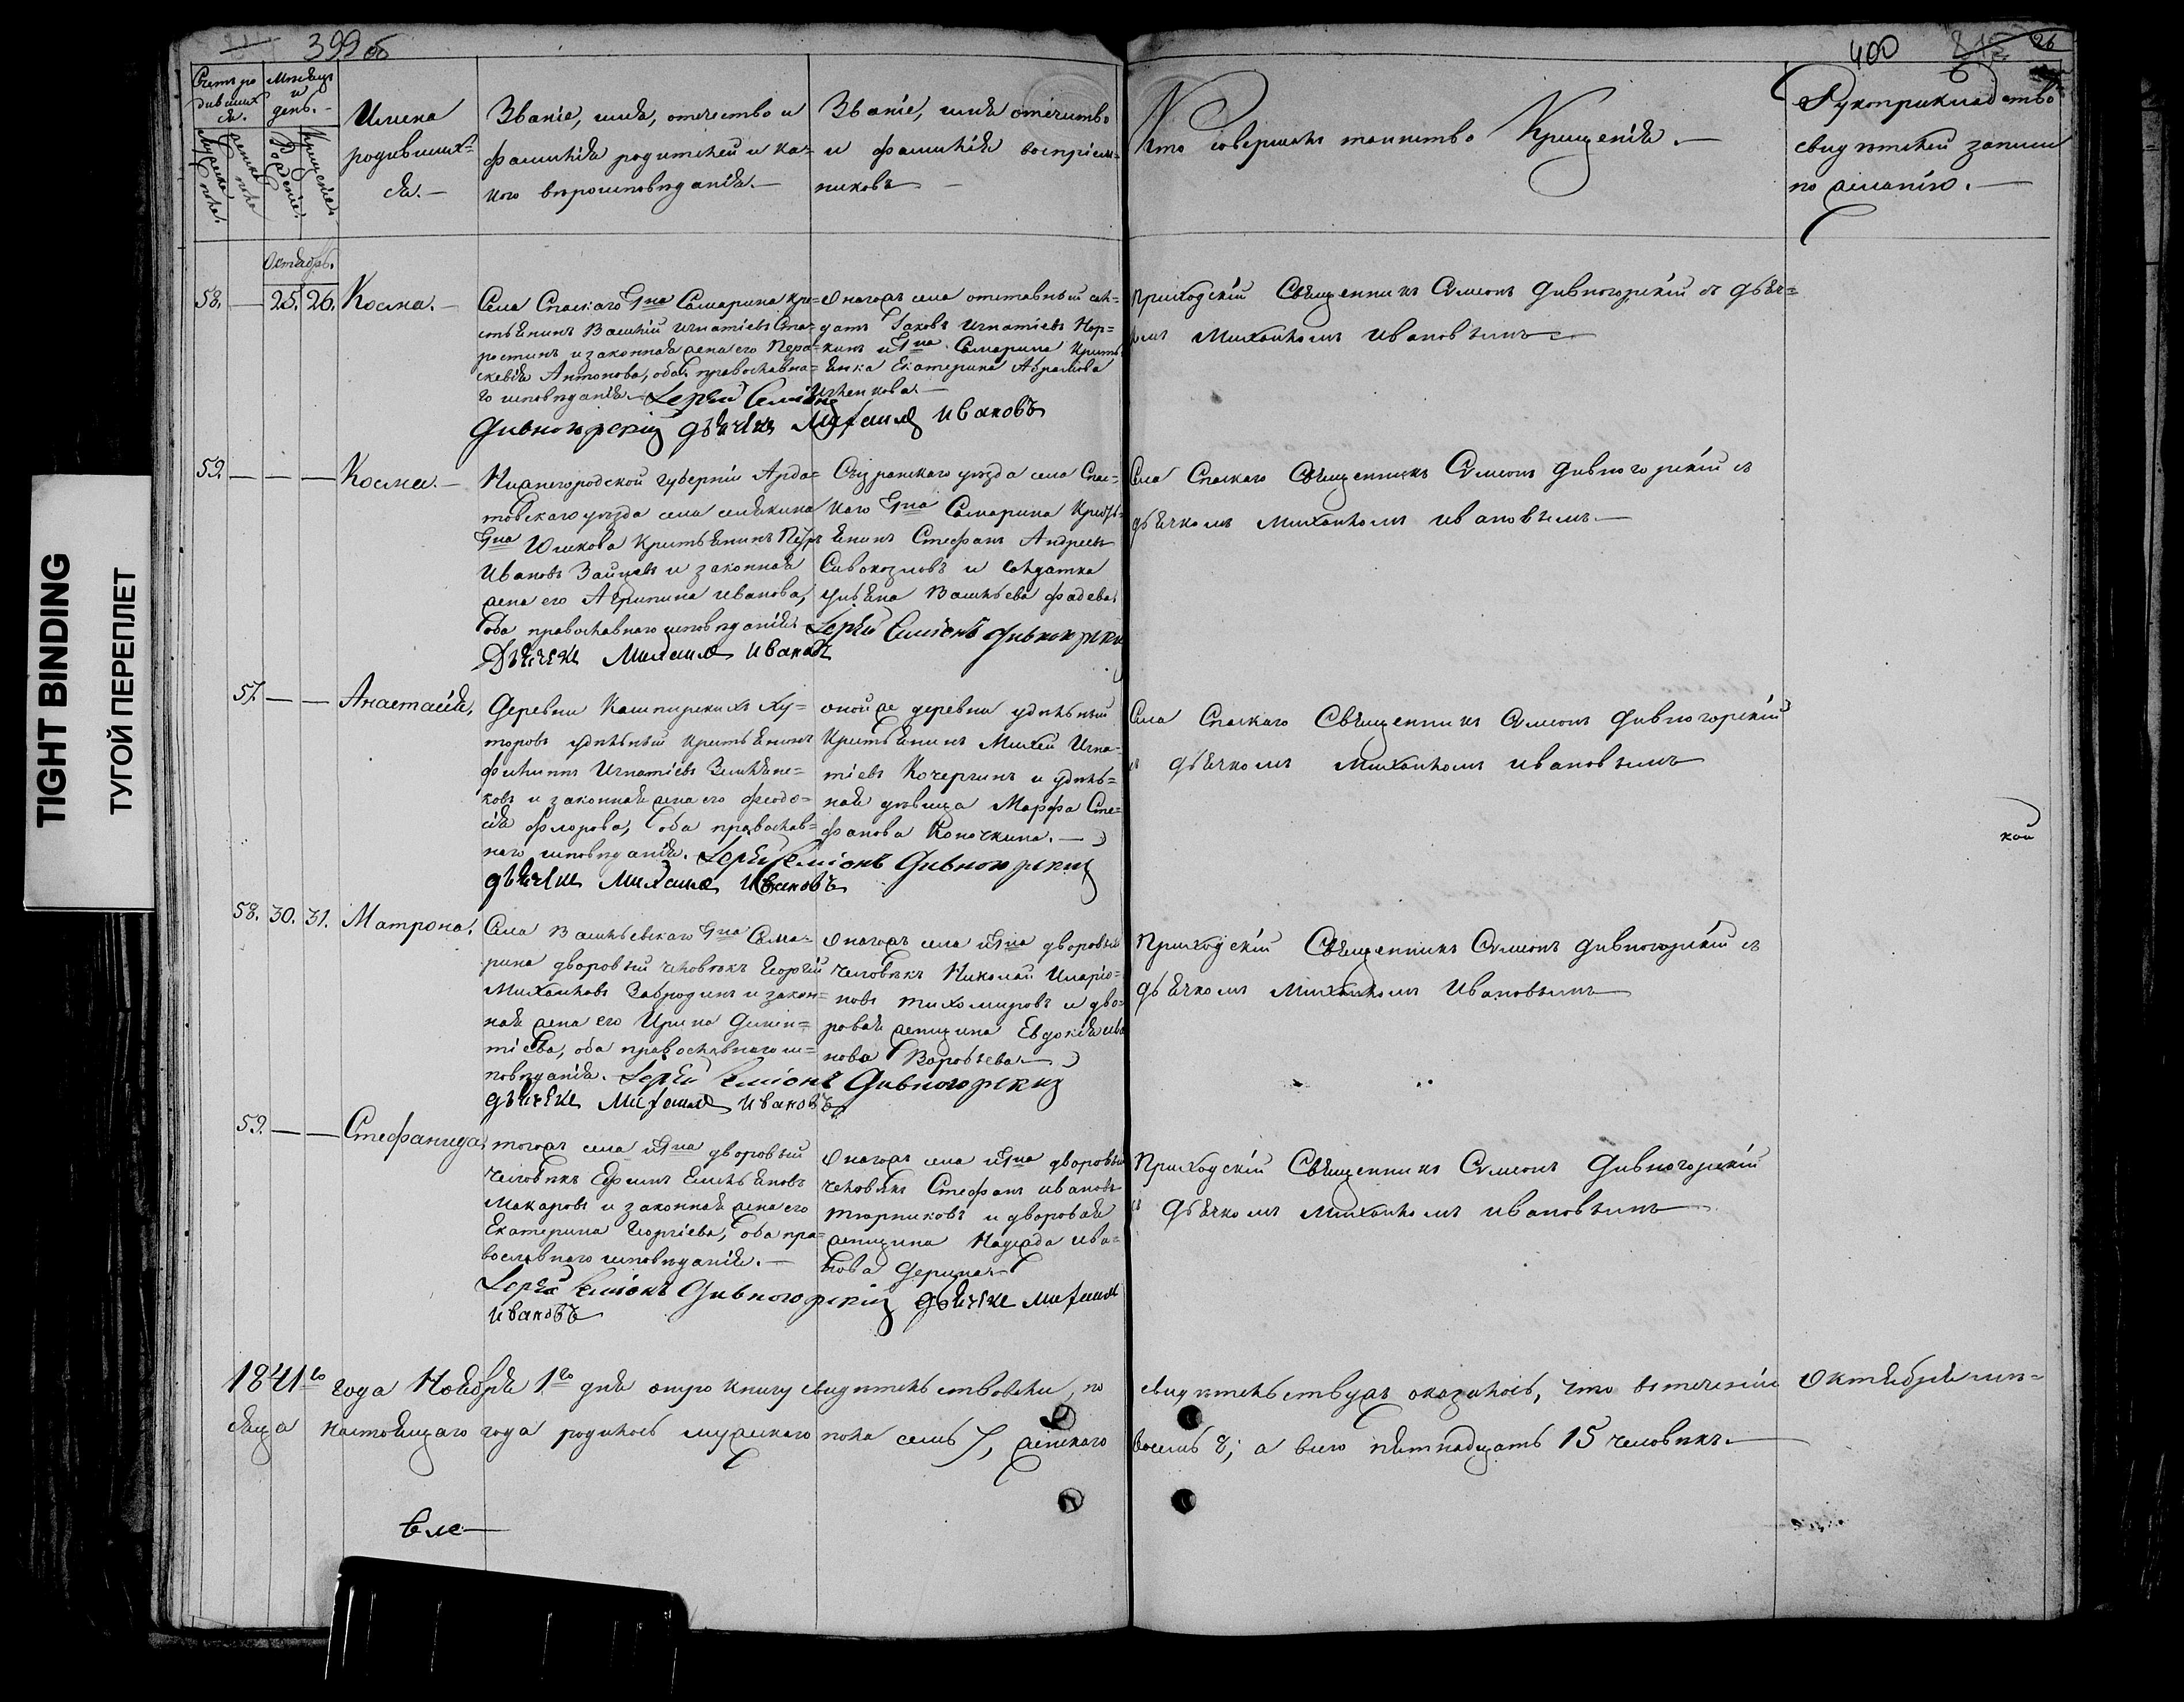 TIGHT BINDING
ТУГОЙ ПЕРЕПЛЕТ
399 об
400
26
Счетъ ро
дивших
ся.
Мужеска
пола.
Женска
пола
Мѣсяцъ
и
день.
Рожденія.
Крещенія.
Имена
родивших=
ся.
Званіе, имя, отечество и
фамилія родителей и ка=
кого вѣроисповѣданія.
Званіе, имя отечитво
и фамилія воспріем=
никовъ
Кто совершалъ таинство Крещенія.
Рукоприкладство
свидѣтелей записи
по желанію.
Октябрь.
58. — 25. 26. Косма.
Села Спаскаго Гна Самарина кре=
стьянинъ Василій Игнатіевъ Ста=
ростинъ и законная жена его Пара=
скевія Антонова, оба православна=
го исповѣданія. Іерей Симіонъ
Дивногорскій дьячекъ Михаилъ Ивановъ
Онагожъ села отставный сол=
датъ Іаковъ Игнатіевъ Нор=
кинъ и Гна Самарина Кресть
янка Екатерина Абрамова
Приходскій Священникъ Симеонъ Дивногорскій съ дьяч=
комъ Михаиломъ Ивановымъ
59. — — — Косма.
Нижегородской губерніи Арда=
товскаго уѣзда села Силякина
Гна Юшкова Крестьянинъ Петръ
Ивановъ Зайцевъ и законная
жена его Агрипина Иванова,
оба православнаго исповѣданія Іерей Симіонъ Дивногорскій
Дьячекъ Михаилъ Ивановъ
Сызранскаго уѣзда села Спас=
каго Гна Самарина Кресть=
янинъ Стефанъ Андреевъ
Сивокозловъ и Солдатка
Ульяна Васильева Фадева
Села Спаскаго Священникъ Симеонъ Дивногорскій съ
дьячкомъ Михаиломъ Ивановымъ
57. — — Анастасія.
Деревни Кашпирскихъ Ху=
торовъ удѣльный крестьянинъ
Филиппъ Игнатіевъ Землян=
ковъ и законная жена его Феодо=
сія Флорова, оба православ=
наго исповѣданія. Іерей Симіонъ Дивногорскій
дьячекъ Михаилъ Ивановъ
оной же деревни удѣльный
Крестьянинъ Михей Игна=
тіевъ Кочергинъ и удѣль=
ная дѣвица Марфа Сте=
фанова Коночкина.
Села Спаскаго Священникъ Симеонъ Дивногорскій
съ дьячкомъ Михаиломъ Ивановымъ
кой
58. 30. 31. Матрона.
Села Васильевскаго Гна Сама=
рина дворовый человѣкъ Георгій
Михаиловъ Забродинъ и закон=
ная жена его Ирина Димен=
тіева, оба православнаго ис=
повѣданія. Іерей Симіонъ Дивногорскій
дьячекъ Михаилъ Ивановъ
Онагожъ села и Гна дворовый
человѣкъ Николай Иларіо=
новъ Тихомировъ и дво=
ровая женщина Евдокія Ива
нова Воробьева
Приходскій Священникъ Симеонъ Дивногорскій съ
дьячкомъ Михаиломъ Ивановымъ
59. — — Стефанида.
тогожъ села и Гна дворовый
человѣкъ Ефимъ Емельяновъ
Макаровъ и законная жена его
Екатерина Георгіева, оба пра=
вославнаго исповѣданія.
Іерей Симіонъ Дивногорскій дьячекъ Михаилъ
Ивановъ
Онагожъ села и Гна дворовый
человѣкъ Стефанъ Ивановъ
Тюрниковъ и дворовая
женщина Надежда Ива=
нова Дерина
Приходскій Священникъ Симеонъ Дивногорскій
съ дьячкомъ Михаиломъ Ивановымъ
1841го года Ноября 1го дня оную книгу свидѣтельствовали, по свидѣтельствужъ оказалось, что въ теченіи Октября мѣ=
сяца настоящаго года родилось мужеска пола семь 7, женскаго восемь 8; а всего пятнадцать 15 человѣкъ.